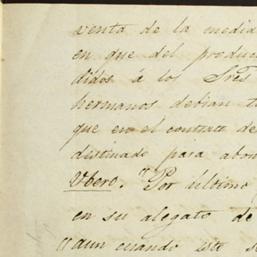 venta de la media
en que del produc
didos á los Tres
hermanos debian t
que en el contrato de
destinado para abon
Vbero. "Por último
en su alegato de
"aun cuando este s